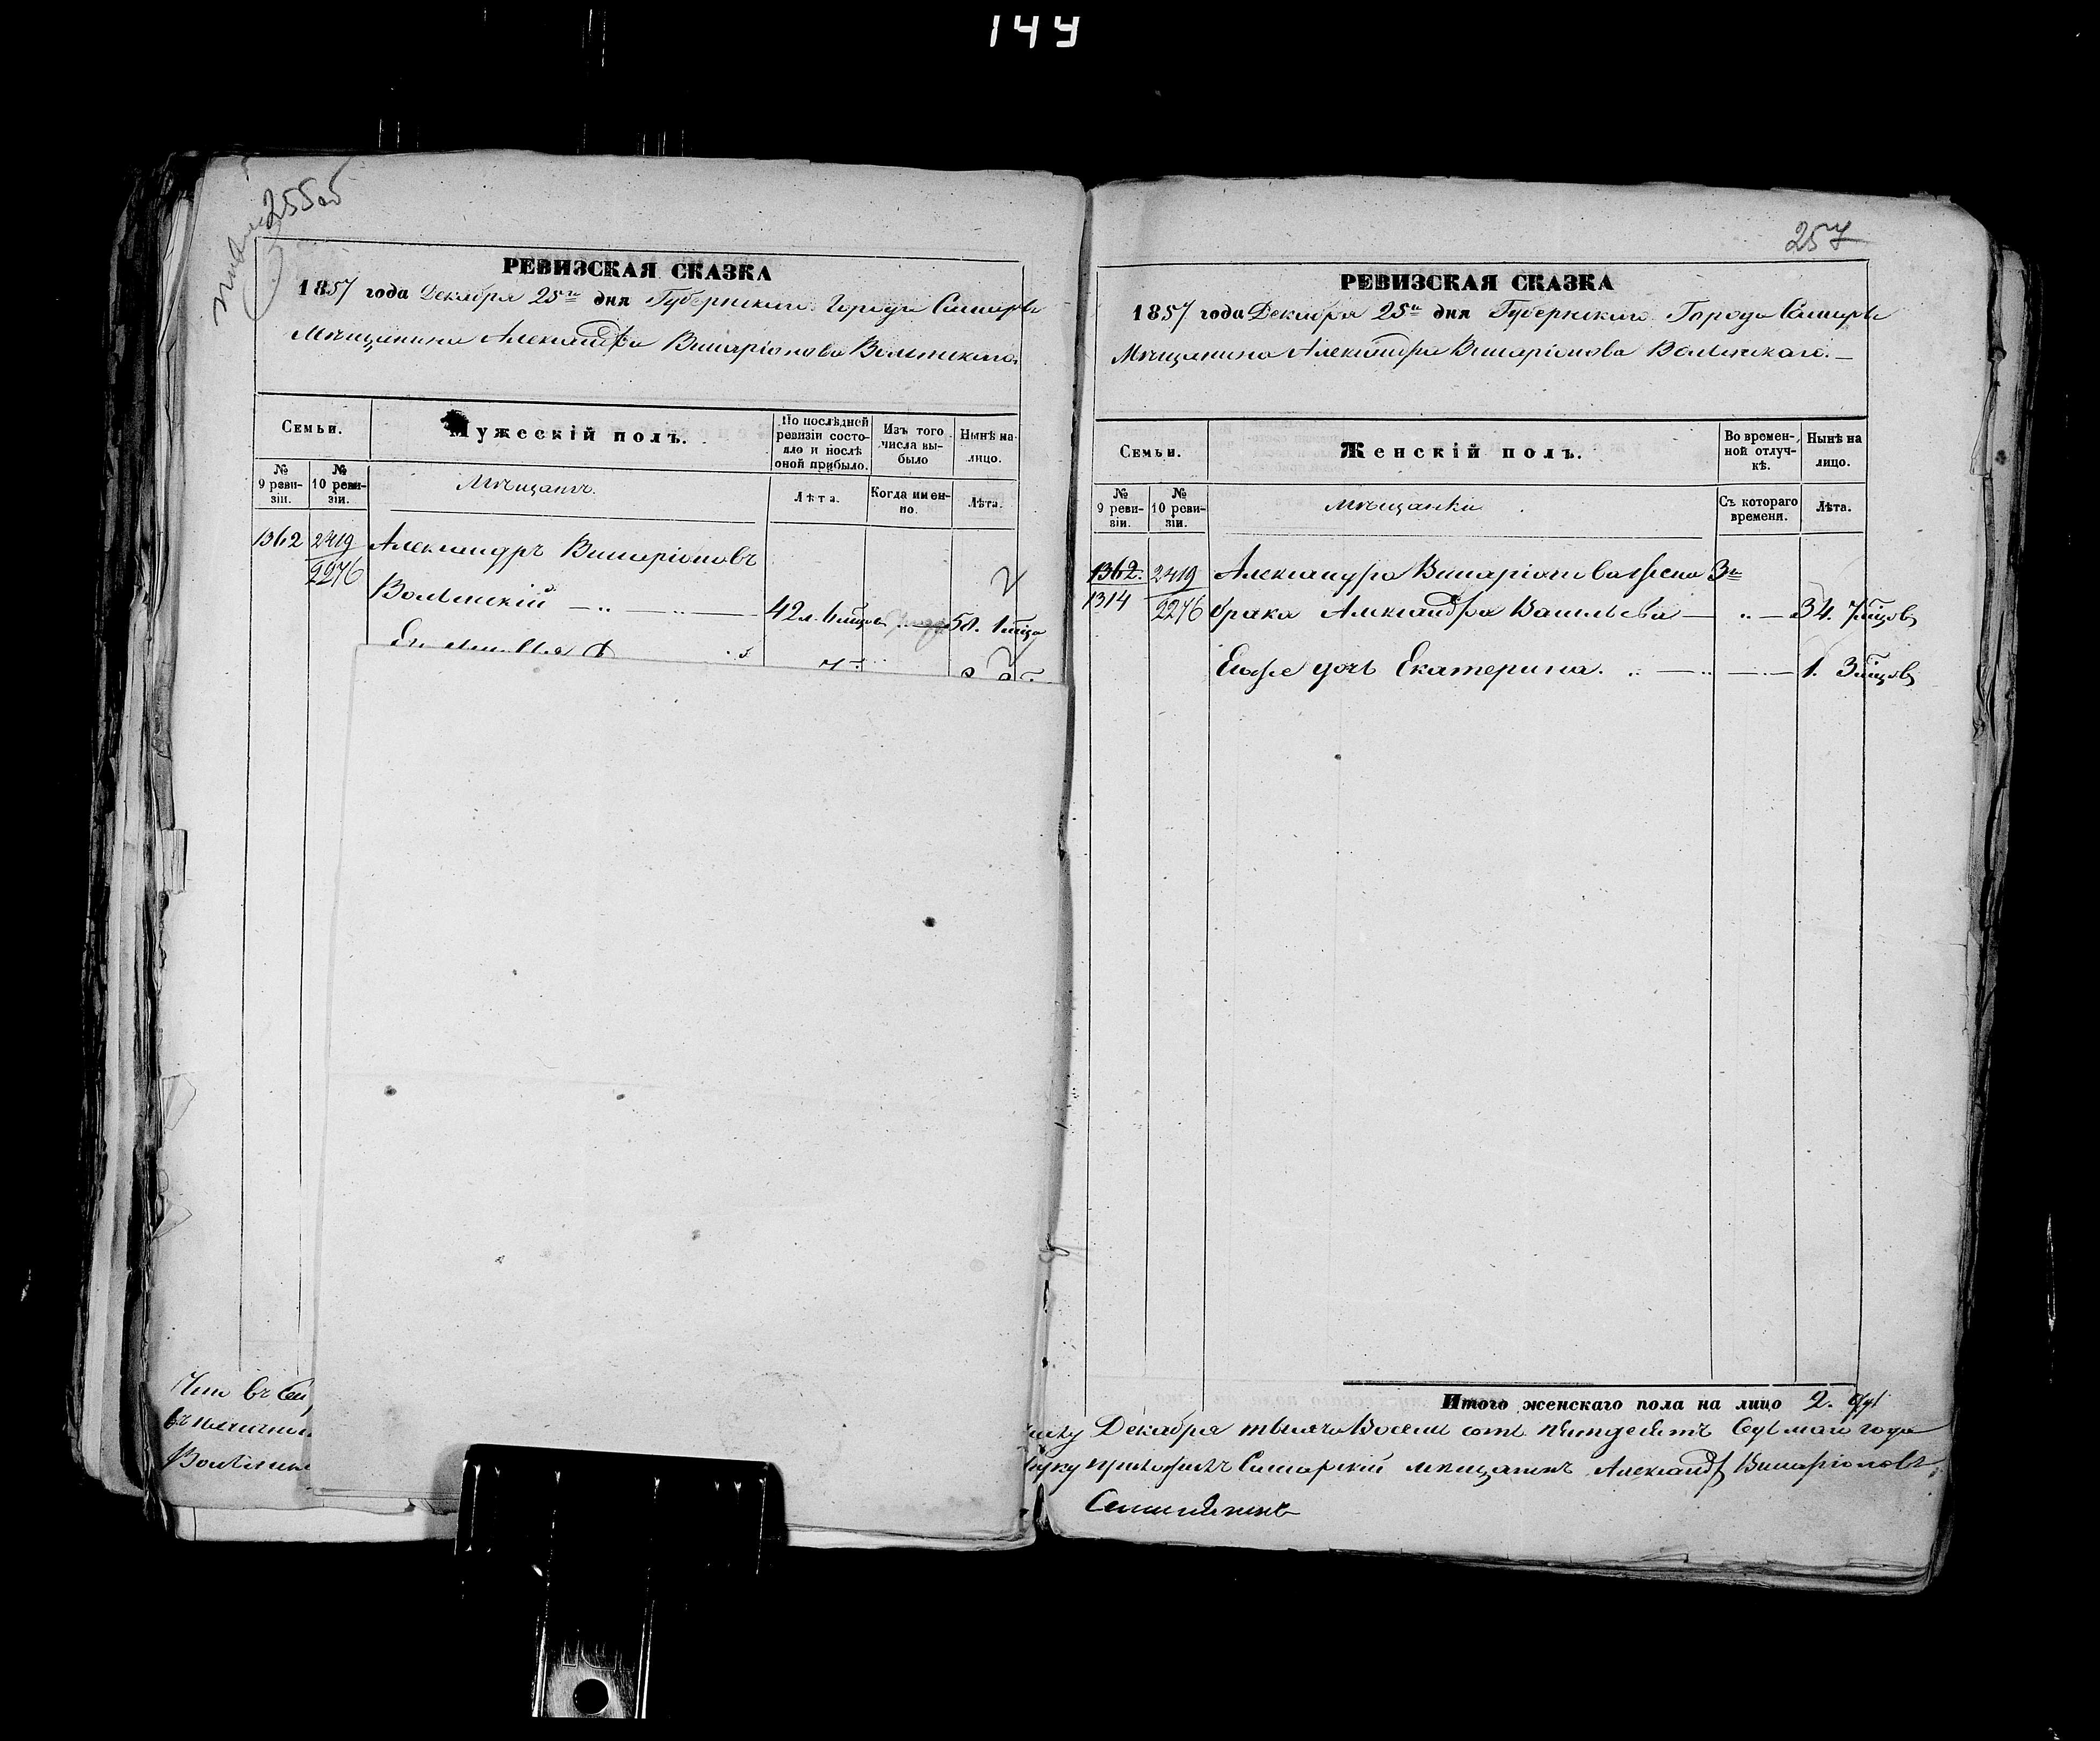 144
255об
РЕВИЗСКАЯ СКАЗКА
1857 года Декабря 25го дня Губернскаго Города Самары
Мѣщанина Александра Виссаріонова Волынскаго.
Семьи.
Мужескій полъ.
По послѣдней ревизіи состояло и послѣ оной прибыло.
Изъ того числа выбыло
Нынѣ на лицо.
№ 9 ревизіи.
№ 10 ревизіи.
Мѣщанъ.
Лѣта.
Когда именно.
Лѣта.
1362 2419 Александръ Виссаріоновъ
2276
Волынскій 42 л. 6 мцовъ 50. 1 мца
Что въ сей
Волынск
257
РЕВИЗСКАЯ СКАЗКА
1857 года Декабря 25го дня Губернскаго Города Самары
Мѣщанина Александра Виссаріонова Волынскаго.
Семьи.
Женскій полъ.
Во временной отлучкѣ.
Нынѣ на лицо.
№ 9 ревизіи.
№ 10 ревизіи.
Мѣщанки
Съ котораго времени.
Лѣта.
1362. 2419 Александра Виссаріонова жена 3го
1314 2276 брака Александра Васильева 34. 7 мцовъ
Ея же дочь Екатерина. 1. 3 мцовъ
Итого женскаго пола на лицо 2. душ
Декабря тысяча Восемь сотъ пятдесятъ седьмаго года
руку приложилъ Самарскій мѣщанинъ Александр Виссаріоновъ